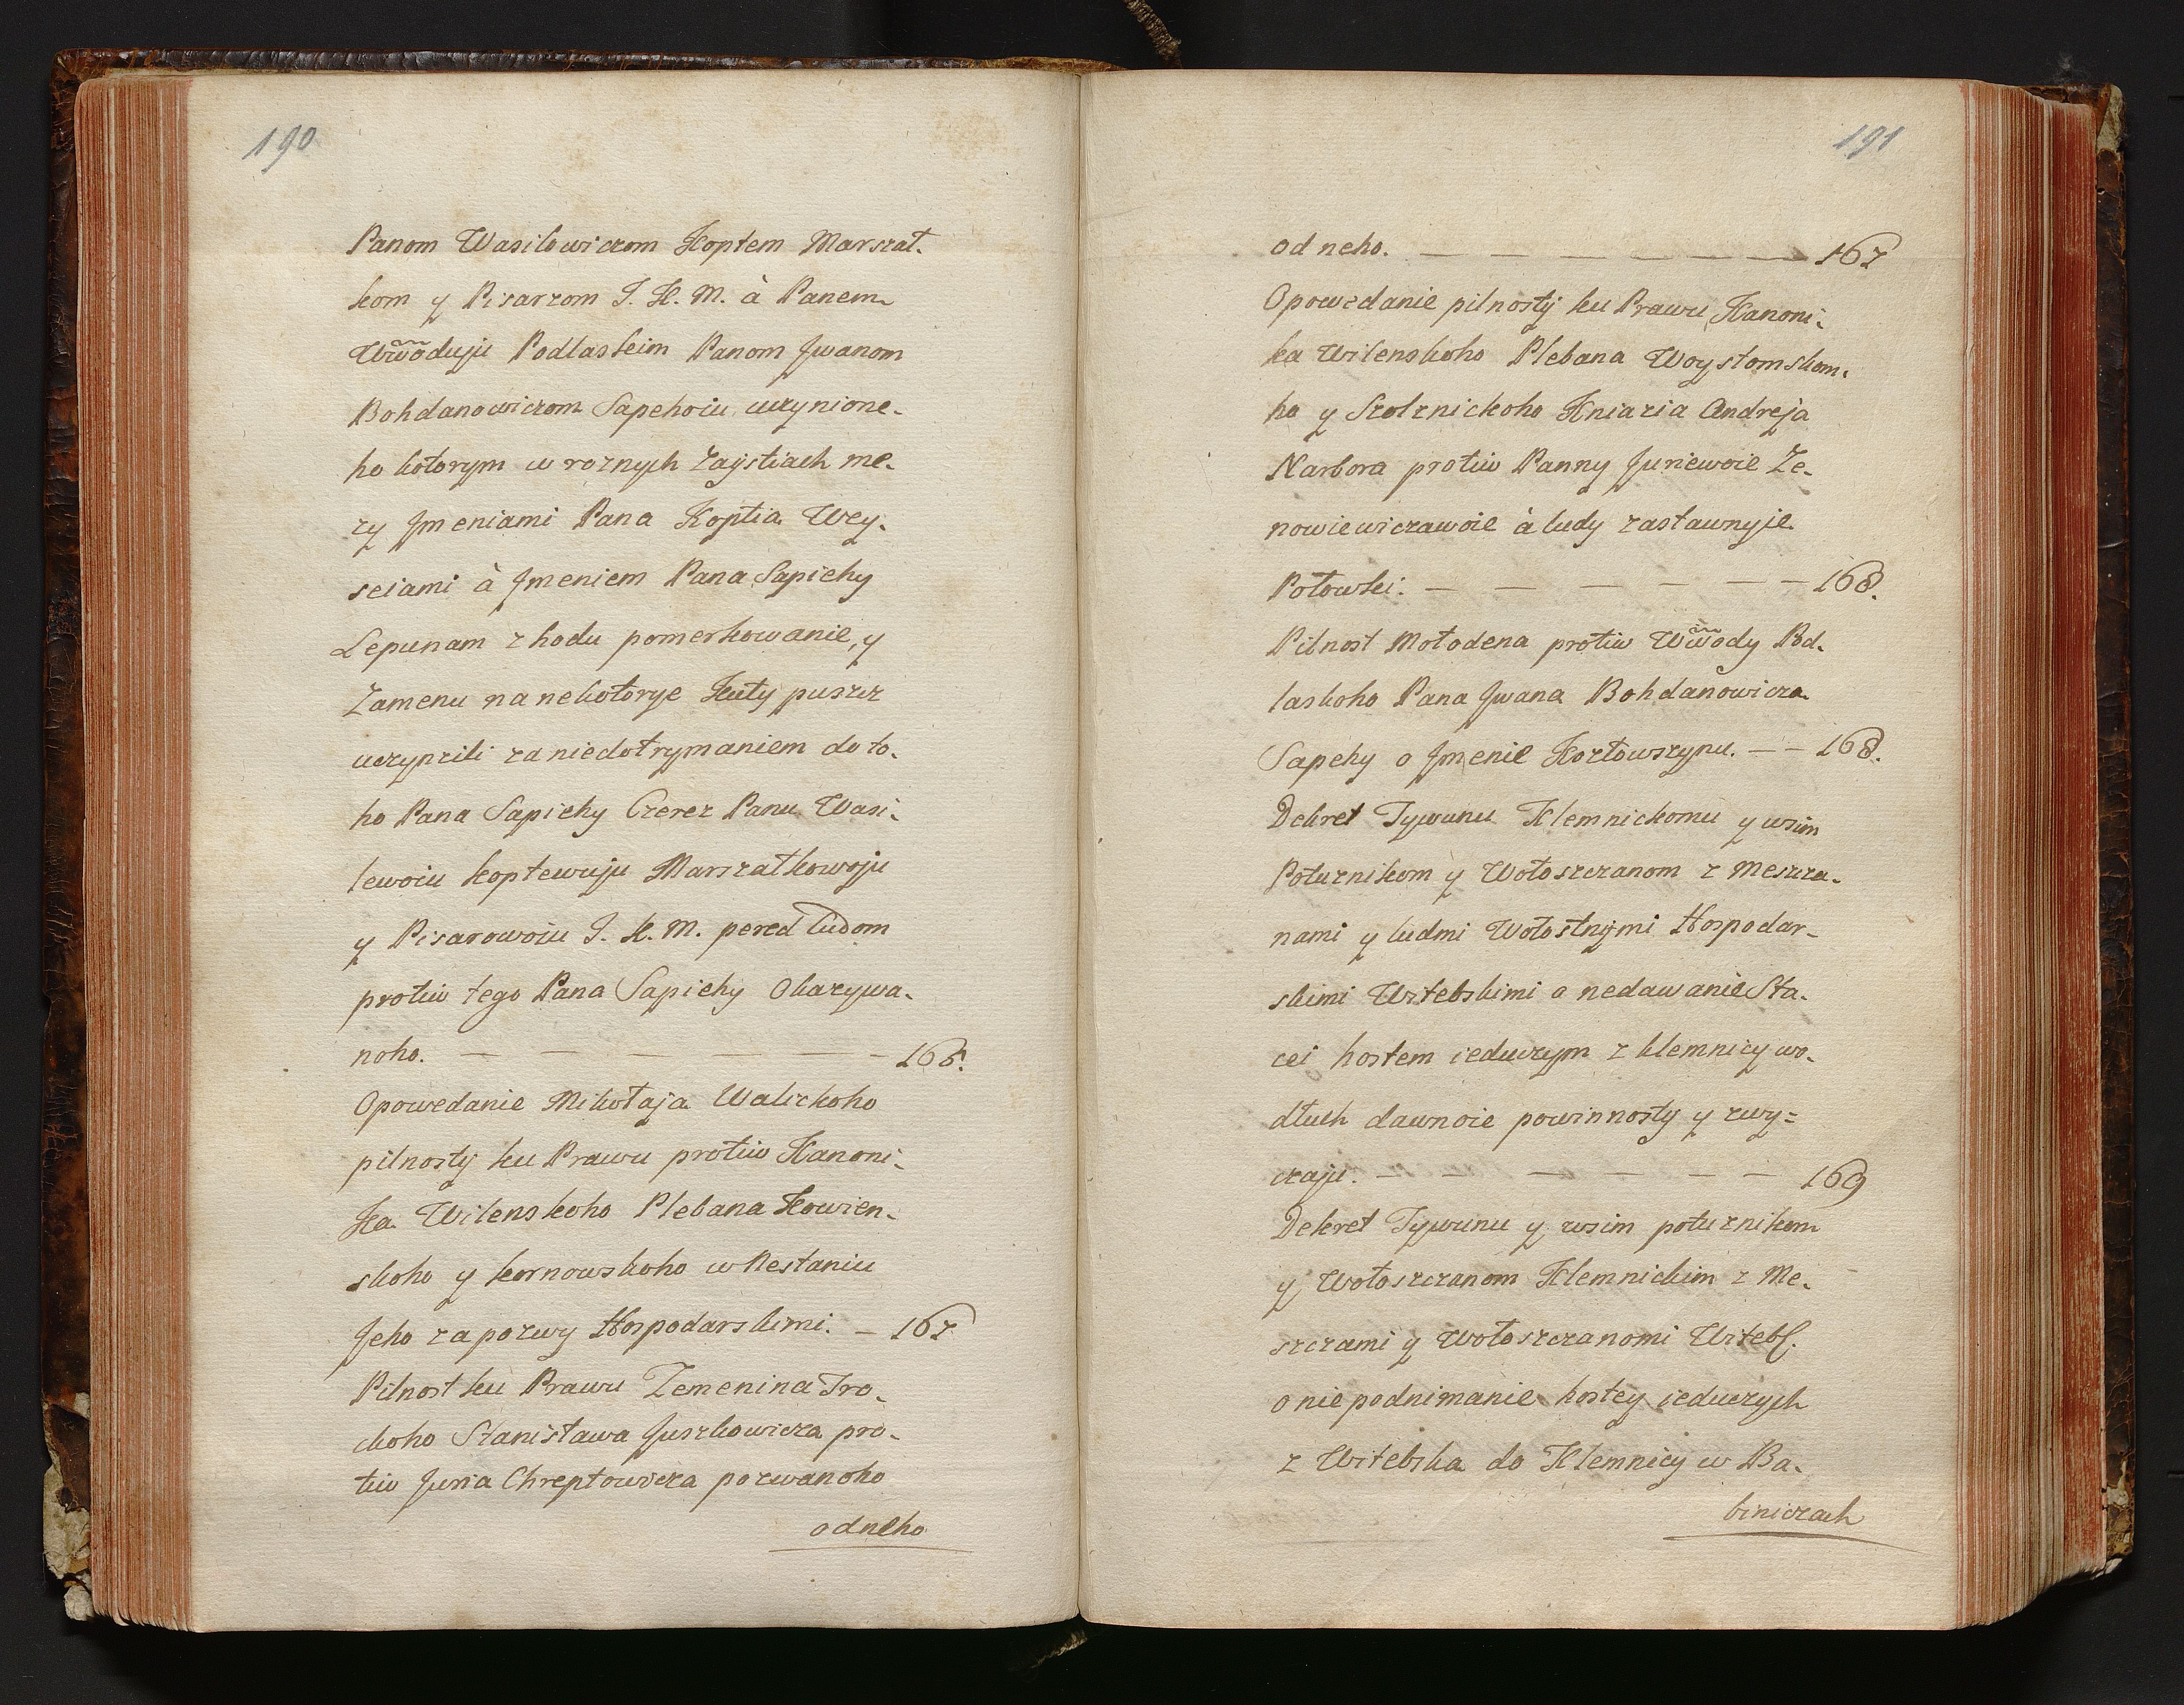 190
Panom Wasilowiczom Koptem Marszał-
kom y Pisarzom J. K. M. à Panem
Wwoduju Podlaskim Panom Jwanom
Bohdanowiczom Sapehoiu uczynione-
ho kotorym w roznych zaystiach me-
zy Jmeniami Pana Koptia Wey-
sciami à Jmeniem Pana Sapiehy
Lepunam zhodu pomerkowanie, y
Zamenu na nekotorye Kuty puszcz
uczynili za niedotrymaniem do to-
ho Pana Sapiehy Czerez Panu Wasi-
lewoiu koptewuju Marszałkowoju
y Pisarowoiu J. K. M. pered ludom
protiw tego Pana Sapiehy Okazywa-
noho. — — — — — 166.
Opowedanie Mikołaja Walickoho
pilnosty ku Prawu protiw Kanoni-
ka Wilenskoho Plebana Kowien-
skoho y kornowskoho w Nestaniu
Jeho za pozwy Hospodarskimi. — 167
Pilnost ku Prawu Zemenina Tro-
ckoho Stanisława Juszkowicza pro-
tiw Juria Chreptowicza pozwanoho
odneho
191
od neho. — — — — — — 167
Opowedanie pilnosty ku Prawu Kanoni-
ka Wilenskoho Plebana Woystomskom-
ho y Stolznickoho Kniazia Andreja
Narbora protiw Panny Juriewoie Ze-
nowiewiczawoie à ludy zastawnyje
Połowki. — — — — — 168.
Pilnost Mołodena protiw Wwody Pod-
laskoho Pana Jwana Bohdanowicza
Sapehy o Jmenie Kozłowszynu. — — 168.
Dekret Tywunu Klemnickomu y wsim
Połuznikom y Wołoszczanom z Meszcza-
nami y ludmi Wołostnymi Hospodar-
skimi Witebskimi o nedawanie Sta-
cei hostem ieduczym z klemnicy wo-
dłuh dawnoie powinnosty y zwy=
czaju. — — — — — — 169
Dekret Tywunu y wsim połuznikom
y Wołoszczanom Klemnickim z Me-
szczami y Wołoszczanomi Witebs.
o niepodnimanie hostey ieduczych
z Witebska do Klemnicy w Ba-
biniczach